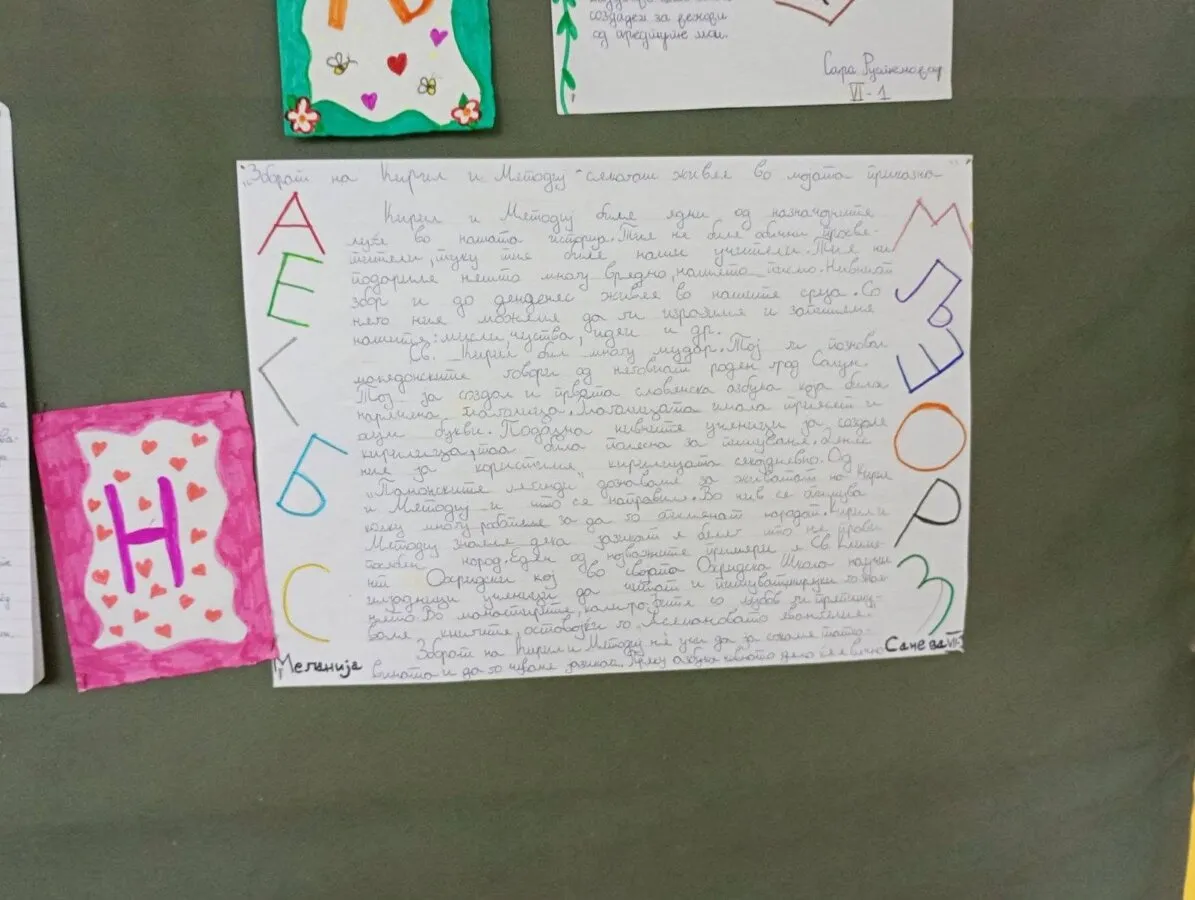 создаден за
од
Сара
VI-1
„Зборот на Кирил и Методиј" секогаш живее во мојата приказна
Кирил и Методиј биле едни од најзначајните
луѓе во нашата историја. Тие не биле обични просве-
тители, туку тие биле наши учители. Тие ни
подариле нешто многу вредно, нашето писмо. Нивниот
збор и до денденес живее во нашите срца. Со
него ние можеме да ги изразиме и запишеме
нашите: мисли, чуства, идеи и др.
Св. Кирил бил многу мудар. Тој ги познавал
македонските говори од неговиот роден град Солун.
Тој ја создал и првата словенска азбука која била
наречена глаголица. Глаголицата имала триесет и
осум букви. Подоцна нивните ученици ја создале
кирилицата, таа била полесна за пишување. Денес
ние ја користиме кирилицата секојдневно. Од
легенди" дознаваме за животот на Кирил
и Методиј и што се направиле. Во нив се
колку многу работеле за да го народот. Кирил и
Методиј знаеле дека јазикот е белег што нè прави
посебен народ. Еден од најважните примери е Св. Климе-
нт Охридски кој во својата Охридска Школа научил
илјадници ученици да читаат и пишуваат
Во манастирите, со љубов ги препишу-
вале книгите, оставајќи го Асемановото евангелие.
Зборот на Кирил и Методиј нè учи да ја сакаме татко-
вината и да го чуваме јазикот. Преку азбуката дело е вечно
А
Е
Г
Б
С
М
Љ
Ш
О
Р
З
Н
Меланија
Санева